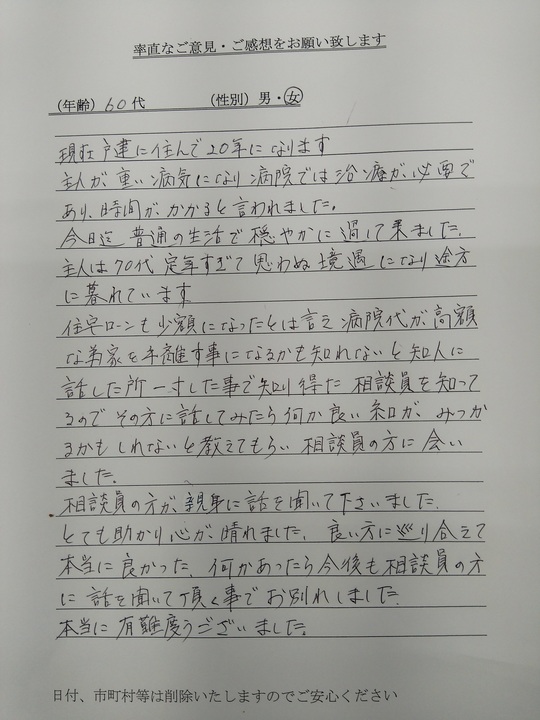 率直なご意見・ご感想をお願い致します
(年齢) 60代 (性別) 男・女
現在戸建に住んで20年になります
主人が重い病気になり病院では治療が必要で
あり、時間がかかると言われました。
今日迄普通の生活で穏やかに過して来ました。
主人は70代定年すぎて思わぬ境遇になり途方
に暮れています
住宅ローンも少額になったとは言え病院代が高額
な為家を手離す事になるかも知れないと知人に
話した所一寸した事で知り得た相談員を知って
るのでその方に話してみたら何か良い糸口がみつか
るかもしれないと教えてもらい相談員の方に会い
ました。
相談員の方が親身に話を聞いて下さいました。
とても助かり心が晴れました。良い方に巡り合えて
本当に良かった。何かあったら今後も相談員の方
に話を聞いて頂く事でお別れしました。
本当に有難度うございました。
日付、市町村等は削除いたしますのでご安心ください